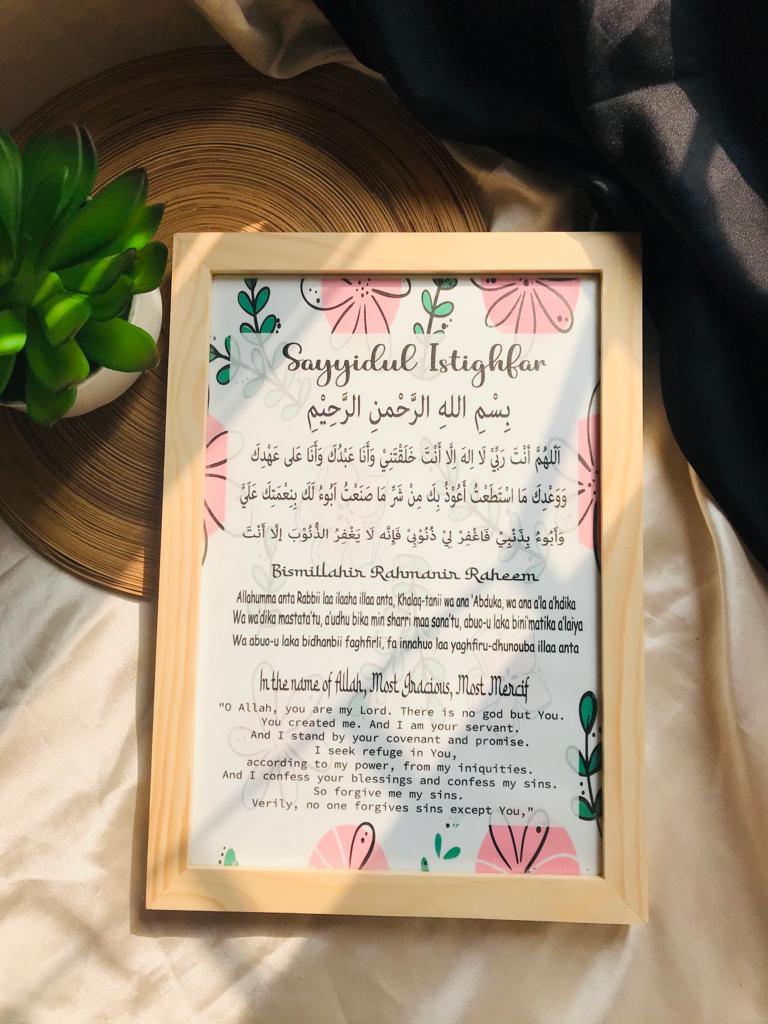 Sayyidul Istighfar
بِسْمِ اللهِ الرَّحْمنِ الرَّحِيْمِ
اَللّٰهُمَّ أَنْتَ رَبِّيْ لَا إِلهَ إِلَّا أَنْتَ خَلَقْتَنِيْ وَأَنَا عَبْدُكَ وَأَنَا عَلى عَهْدِكَ
وَوَعْدِكَ مَا اسْتَطَعْتُ أَعُوْذُ بِكَ مِنْ شَرِّ مَا صَنَعْتُ أَبُوْءُ لَكَ بِنِعْمَتِكَ عَلَيَّ
وَأَبُوْءُ بِذَنْبِيْ فَاغْفِرْ لِيْ ذُنُوْبِيْ فَإِنَّه لَا يَغْفِرُ الذُّنُوْبَ إِلَّا أَنْتَ
Bismillahir Rahmanir Raheem
Allahumma anta Rabbii laa ilaaha illaa anta, Khalaq-tanii wa ana 'Abduka, wa ana a'la a'hdika
Wa wa'dika mastata'tu, a'udhu bika min sharri maa sana'tu, abuo-u laka bini'matika a'laiya
Wa abuo-u laka bidhanbii faghfirli, fa innahuo laa yaghfiru-dhunouba illaa anta
In the name of Allah, Most Gracious, Most Mercif
"O Allah, you are my Lord. There is no god but You.
You created me. And I am your servant.
And I stand by your covenant and promise.
I seek refuge in You,
according to my power, from my iniquities.
And I confess your blessings and confess my sins.
So forgive me my sins.
Verily, no one forgives sins except You,"